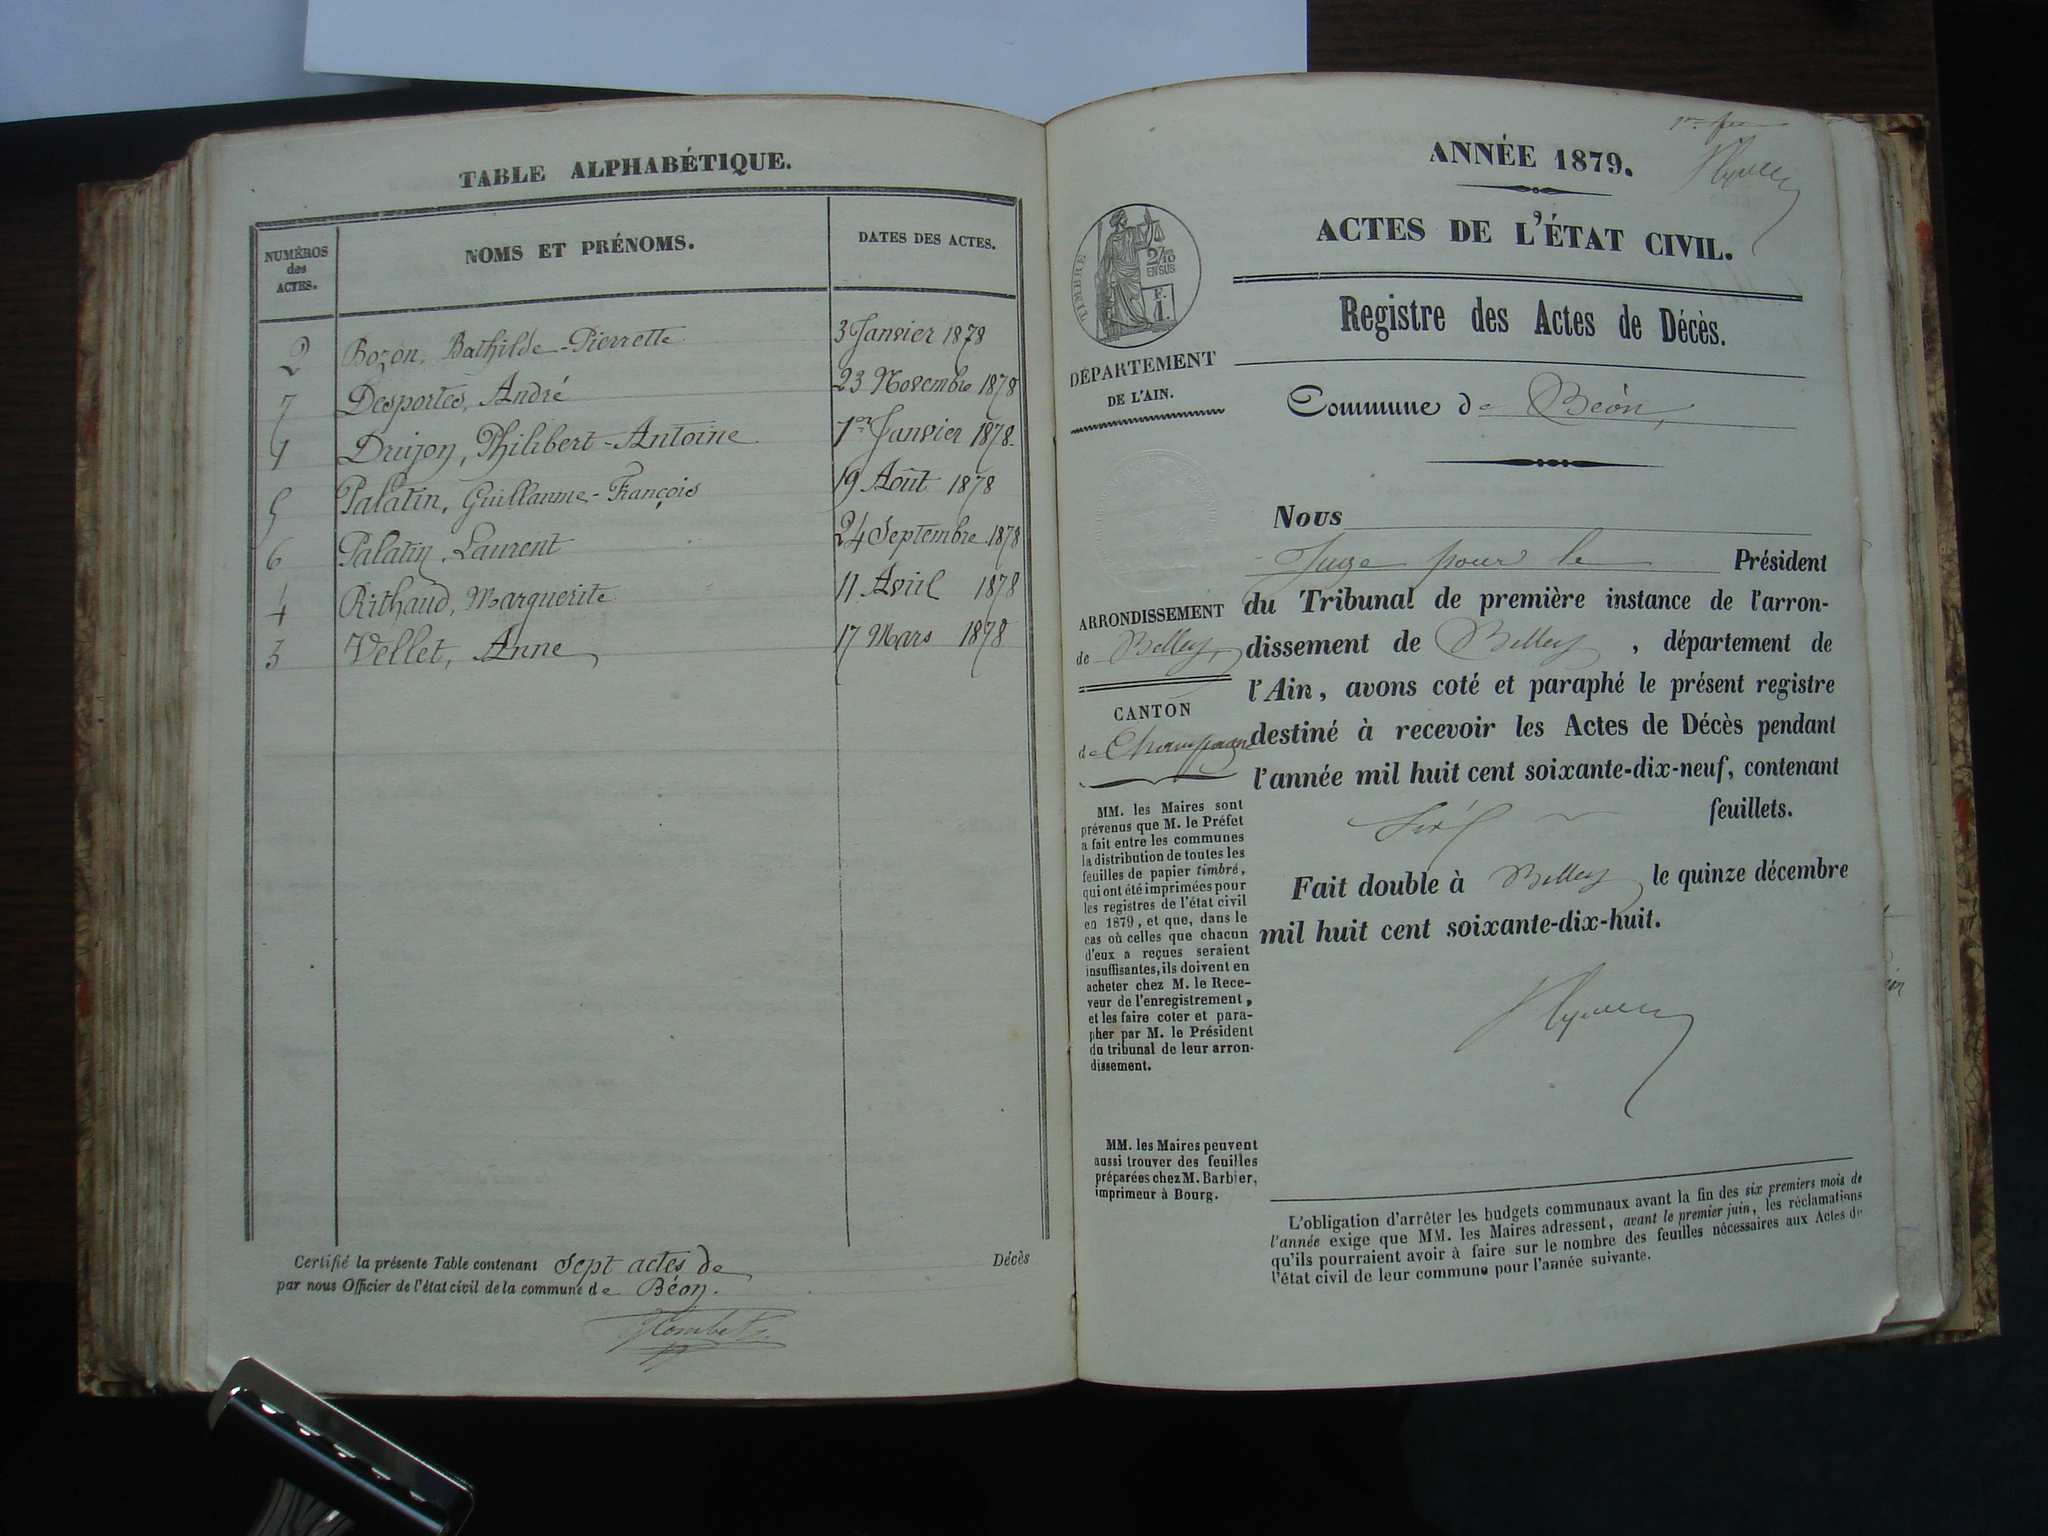 TABLE ALPHABÉTIQUE.
NUMÉROS
des
ACTES.
NOMS ET PRÉNOMS.
DATES DES ACTES.
2 Bozon, Bathilde-Pierrette 3 Janvier 1878
7 Desportes, André 23 Novembre 1878
1 Drujon, Philibert-Antoine 1er Janvier 1878.
5 Palatin, Guillaume-François 19 Août 1878
6 Palatin, Laurent 24 Septembre 1878
4 Rithaud, Marguerite 11 Avril 1878
3 Vellet, Anne 17 Mars 1878
Certifié la présente Table contenant sept actes de Décès
par nous Officier de l'état civil de la commune de Béon.
ANNÉE 1879.
ACTES DE L'ÉTAT CIVIL.
Registre des Actes de Décès.
Commune de Béon,
TIMBRE
2/10
EN SUS
F.
1.
DÉPARTEMENT
DE L'AIN.
ARRONDISSEMENT
de Belley,
CANTON
de Champagne
MM. les Maires sont
prévenus que M. le Préfet
a fait entre les communes
la distribution de toutes les
feuilles de papier timbré,
qui ont été imprimées pour
les registres de l'état civil
en 1879, et que, dans le
cas où celles que chacun
d'eux a reçues seraient
insuffisantes, ils doivent en
acheter chez M. le Rece-
veur de l'enregistrement,
et les faire coter et para-
pher par M. le Président
du tribunal de leur arron-
dissement.
MM. les Maires peuvent
aussi trouver des feuilles
préparées chez M. Barbier,
imprimeur à Bourg.
Nous
Juge pour le Président
du Tribunal de première instance de l'arron-
dissement de Belley, département de
l'Ain, avons coté et paraphé le présent registre
destiné à recevoir les Actes de Décès pendant
l'année mil huit cent soixante-dix-neuf, contenant
feuillets.
Fait double à Belley le quinze décembre
mil huit cent soixante-dix-huit.
L'obligation d'arrêter les budgets communaux avant la fin des six premiers mois de
l'année exige que MM. les Maires adressent, avant le premier juin, les réclamations
qu'ils pourraient avoir à faire sur le nombre des feuilles nécessaires aux Actes de
l'état civil de leur commune pour l'année suivante.